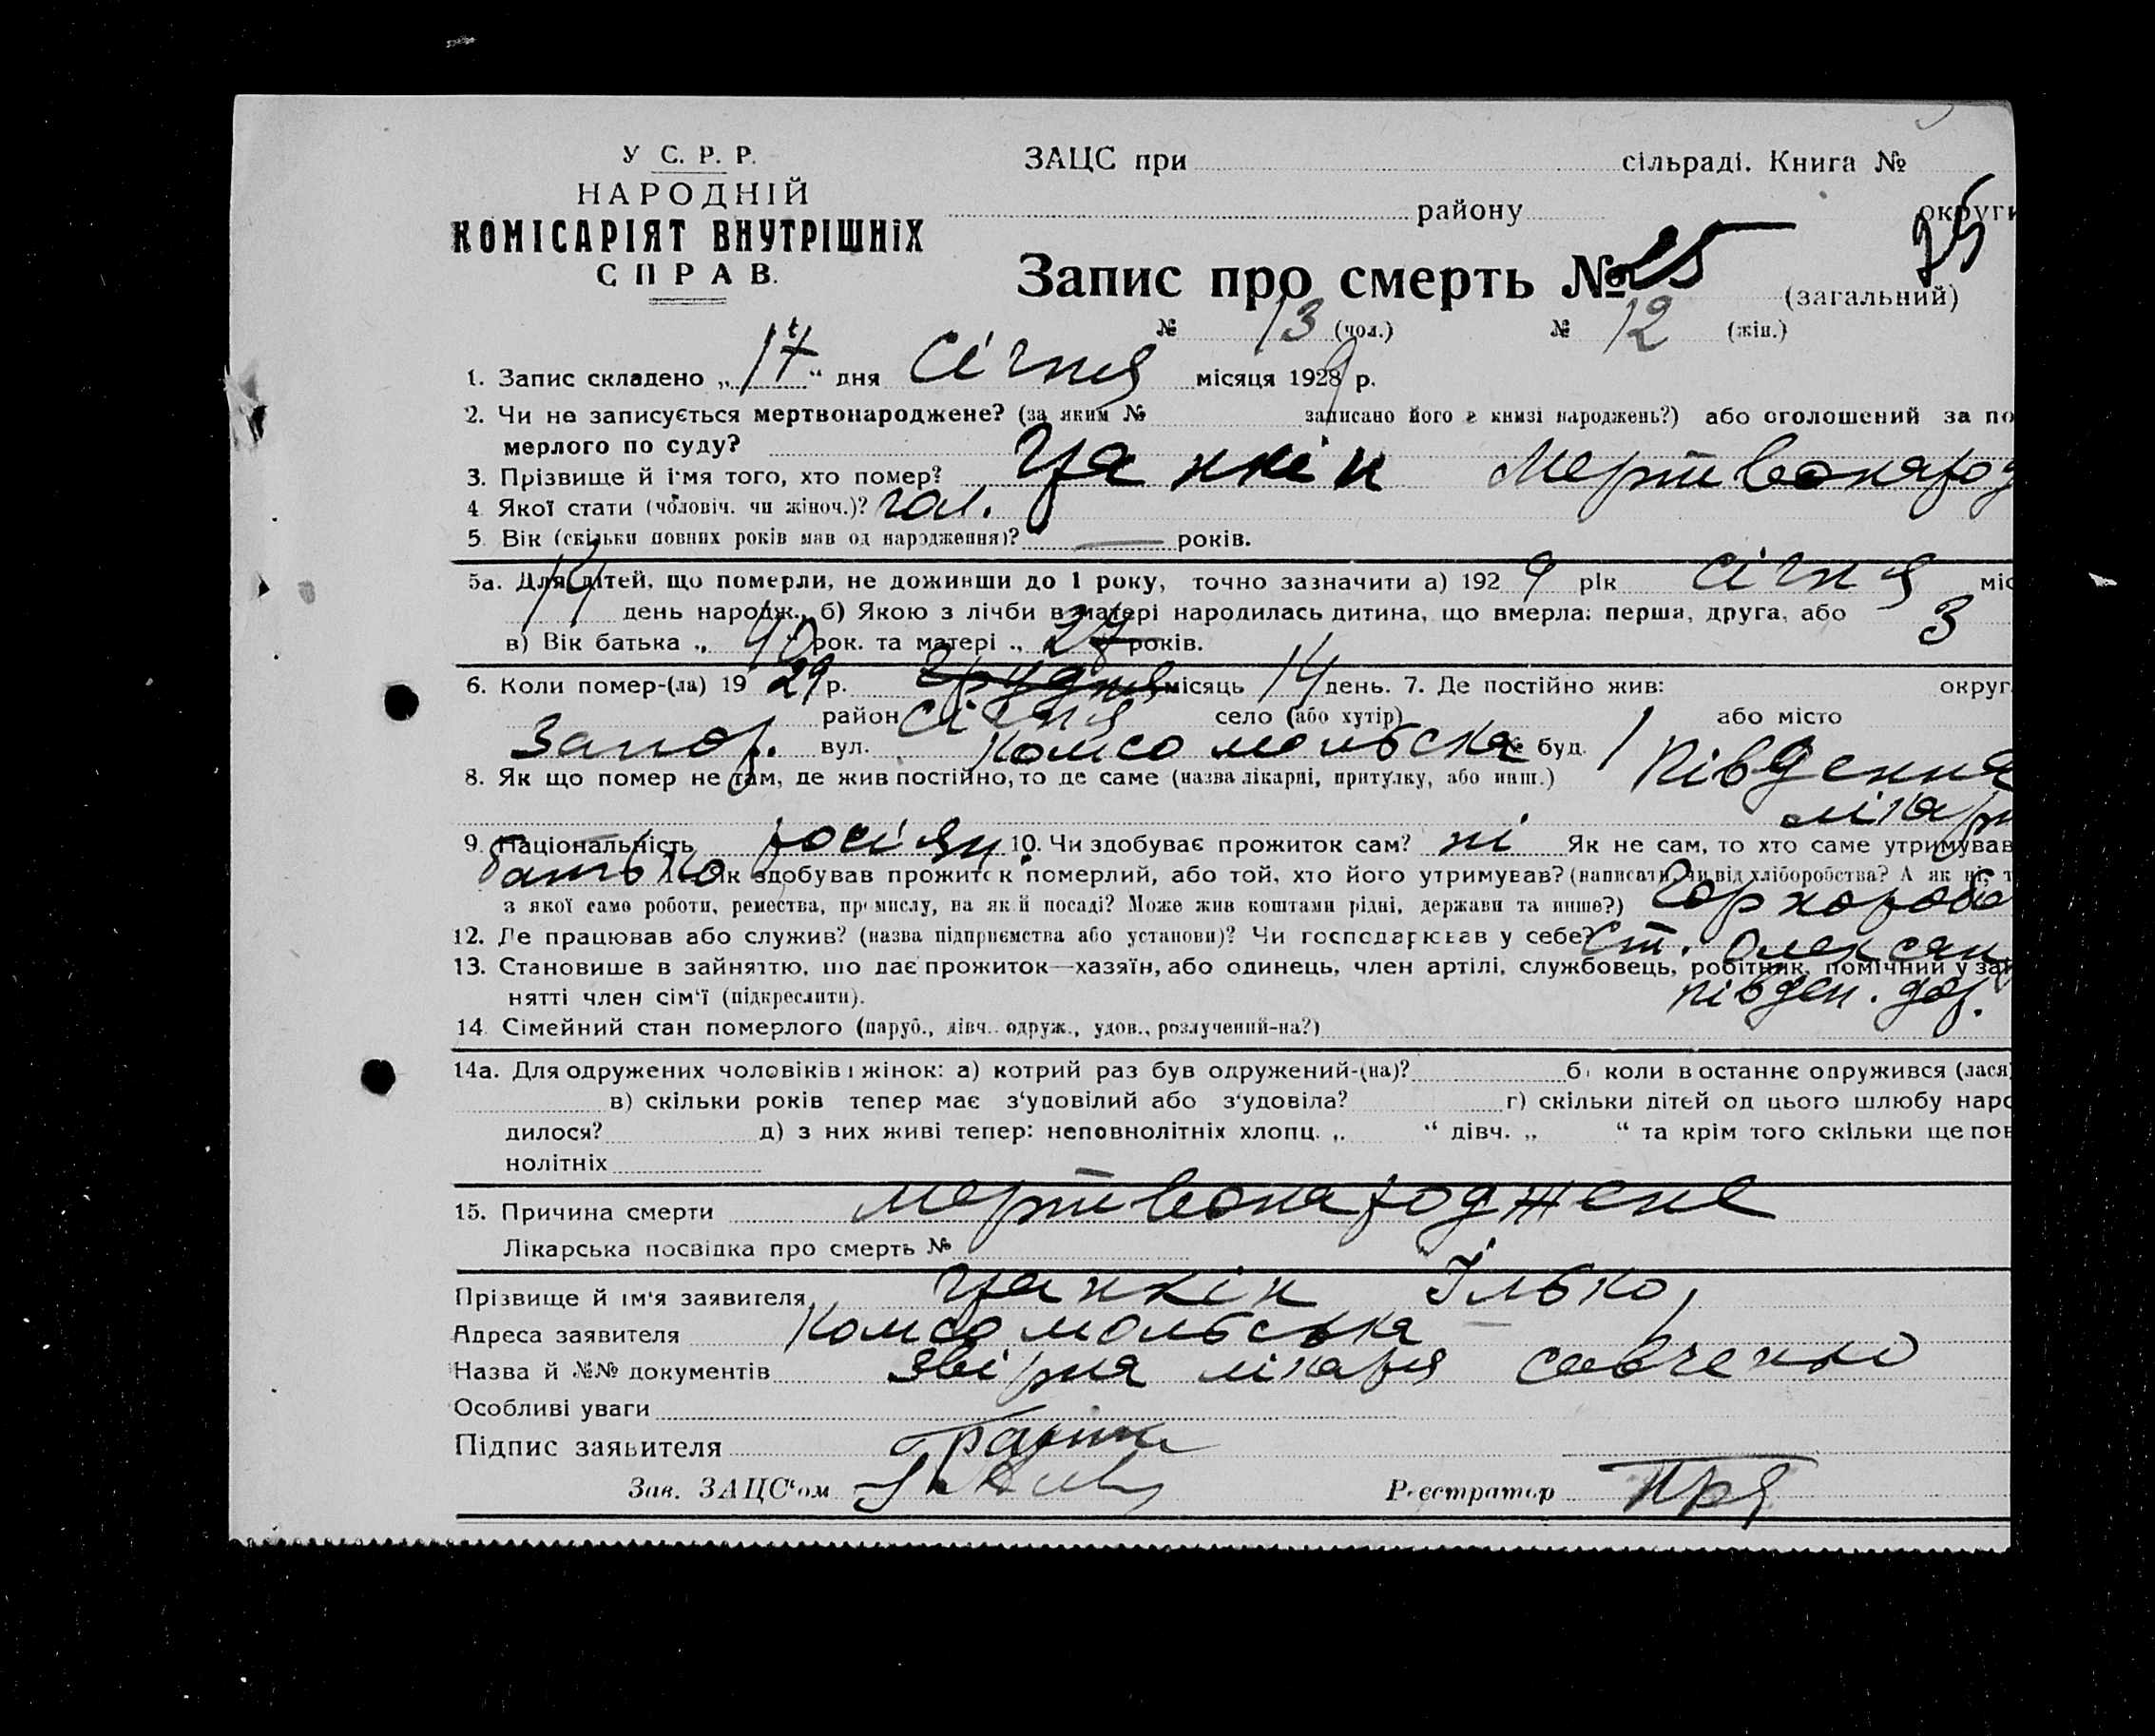 У С. Р. Р.
НАРОДНІЙ
КОМІСАРІЯТ ВНУТРІШНІХ
СПРАВ.
ЗАЦС при сільраді. Книга №
району округи
25
Запис про смерть № 25 (загальний)
№ 13 (чол.) № 12 (жін.)
1. Запис складено „ 17 “ дня січня місяця 1929 р.
2. Чи не записується мертвонароджене? (за яким № записано його в книзі народжень?) або оголошений за по
мерлого по суду?
3. Прізвище й ім'я того, хто помер? Цанкін Мертвонарод
4. Якої стати (чоловіч. чи жіноч.)? чол.
5. Вік (скільки повних років мав од народження)? — років.
5а. Для дітей, що померли, не доживши до 1 року, точно зазначити а) 1929 рік січня міс
14 день народж., б) Якою з лічби в матері народилась дитина, що вмерла: перша, друга, або 3
в) Вік батька „ 40 рок. та матері „ 27 років.
6. Коли помер-(ла) 19 29 р. грудня місяць 14 день. 7. Де постійно жив: округ
район січня село (або хутір) або місто
Запор. вул. Комсомольська № буд. 1
8. Як що помер не там, де жив постійно, то де саме (назва лікарні, притулку, або инш.) Південна
лікарн
9. Національність росіян 10. Чи здобуває прожиток сам? ні Як не сам, то хто саме утримував
батько Як здобував прожиток померлий, або той, хто його утримував? (написати, чи від хліборобства? А як ні, т
з якої само роботи, ремества, промислу, на якій посаді? Може жив коштами рідні, держави та инше?) Чорнороб
12. Де працював або служив? (назва підприємства або установи)? Чи господарював у себе? Ст. Олексан
13. Становище в зайняттю, що дає прожиток—хазяїн, або одинець, член артілі, службовець, робітник, помічний у зай
нятті член сім'ї (підкреслити). Півден. дор.
14. Сімейний стан померлого (паруб., дівч. одруж., удов., розлучений-на?)
14а. Для одружених чоловіків і жінок: а) котрий раз був одружений-(на)? б) коли востаннє одружився (лася)
в) скільки років тепер має з'удовілий або з'удовіла? г) скільки дітей од цього шлюбу наро
дилося? д) з них живі тепер: неповнолітніх хлопц. „ “ дівч. „ “ та крім того скільки ще пов
нолітніх
15. Причина смерти мертвонароджене
Лікарська посвідка про смерть №
Прізвище й ім'я заявителя Цанкін Ілько
Адреса заявителя Комсомольська
Назва й №№ документів лікаря Савченко
Особливі уваги
Підпис заявителя
Зав. ЗАЦС'ом Реєстратор